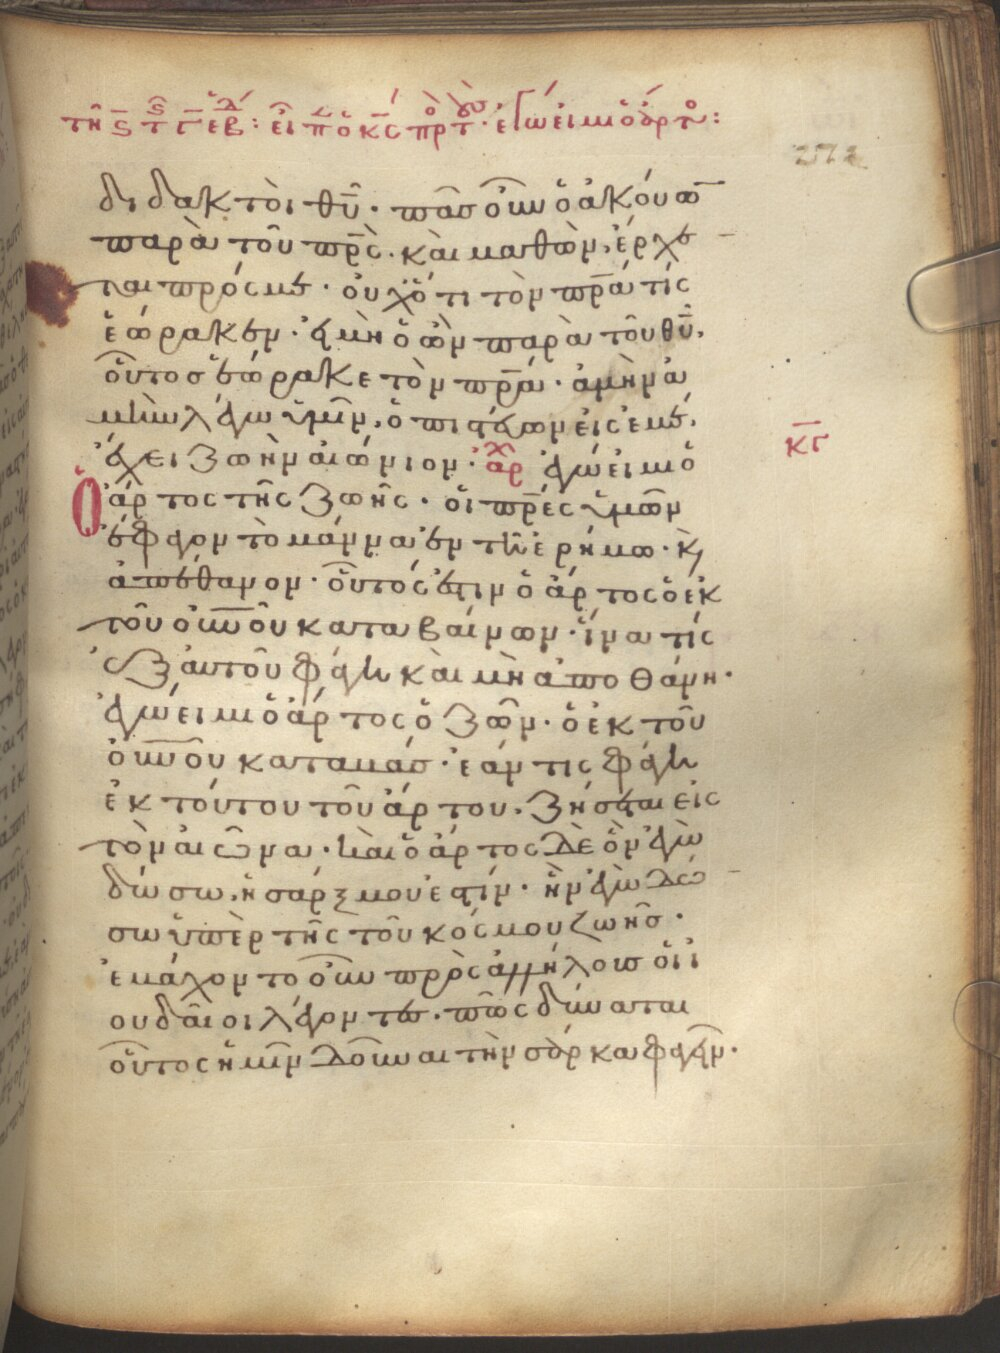 τῆ ϛ τ γ εβδ: εἶπ ὁ κς πρ τ· ἐγώ εἰμι ὁ ἄρτο:
272
διδακτοὶ θῦ· πᾶσ οὖν ὁ ἀκούω
παρὰ τοῦ πρς· καὶ μαθὼν, ἔρχε
ται πρός με· οὐχ ὅτι τὸν πρα τίς
ἑώρακεν· εἰ μὴ ὁ ὢν παρὰ τοῦ θῦ,
οὗτοσ ἑώρακε τὸν πρα· ἀμὴν ἀ
μὴν λέγω ὑμῖν, ὁ πιστεύων εἰς ἐμέ,
ἔχει ζωὴν αἰώνιον· ἀρχ ἐγώ εἰμι ὁ
κγ
ἄρτος τῆς ζωῆς· οἱ πρες ὑμῶν
ἔφαγον τὸ μάννα ἐν τῆ ἐρήμω· κ
ἀπέθανον· οὗτός ἐστιν ὁ ἄρτος ὁ ἐκ
τοῦ οὐνοῦ καταβαίνων· ἵνα τίς
ἐξ αὐτοῦ φάγη καὶ μὴ ἀποθάνη·
ἐγώ εἰμι ὁ ἄρτος ὁ ζῶν· ὁ ἐκ τοῦ
οὐνοῦ καταβάσ· ἐάν τις φάγη
ἐκ τούτου τοῦ ἄρτου, ζήσεται εἰς
τὸν αἰῶνα· καὶ ὁ ἄρτος δὲ ὃν ἐγὼ
δώσω, ἡ σάρξ μου ἐστίν· ἣν ἐγὼ δώ
σω ὑπὲρ τῆς τοῦ κόσμου ζωῆσ·
ἐμάχοντο οὖν πρὸς ἀλλήλουσ οἱ ἰ
ουδαῖοι λέγοντες· πῶς δύναται
οὗτος ἡμῖν δοῦναι τὴν σάρκα φαγεῖν·